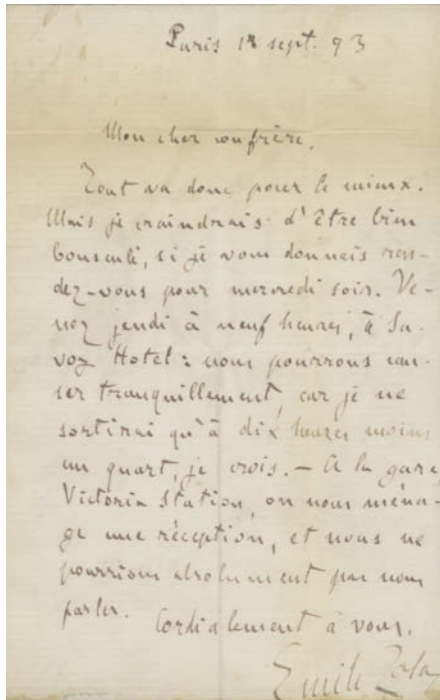 Paris 18 sept. 93
Mon cher confrère,
Tout va donc pour le mieux.
Mais je craindrais d'être bien
bousculé, si je vous donnais ren-
dez-vous pour mercredi soir. Ve-
nez jeudi à neuf heures, à Sa-
voy Hotel : nous pourrons cau-
ser tranquillement, car je ne
sortirai qu'à dix heures moins
un quart, je crois. — A la gare,
Victoria Station, on nous ména-
ge une réception, et nous ne
pourrions absolument pas nous
parler.
Cordialement à vous.
Emile Zola